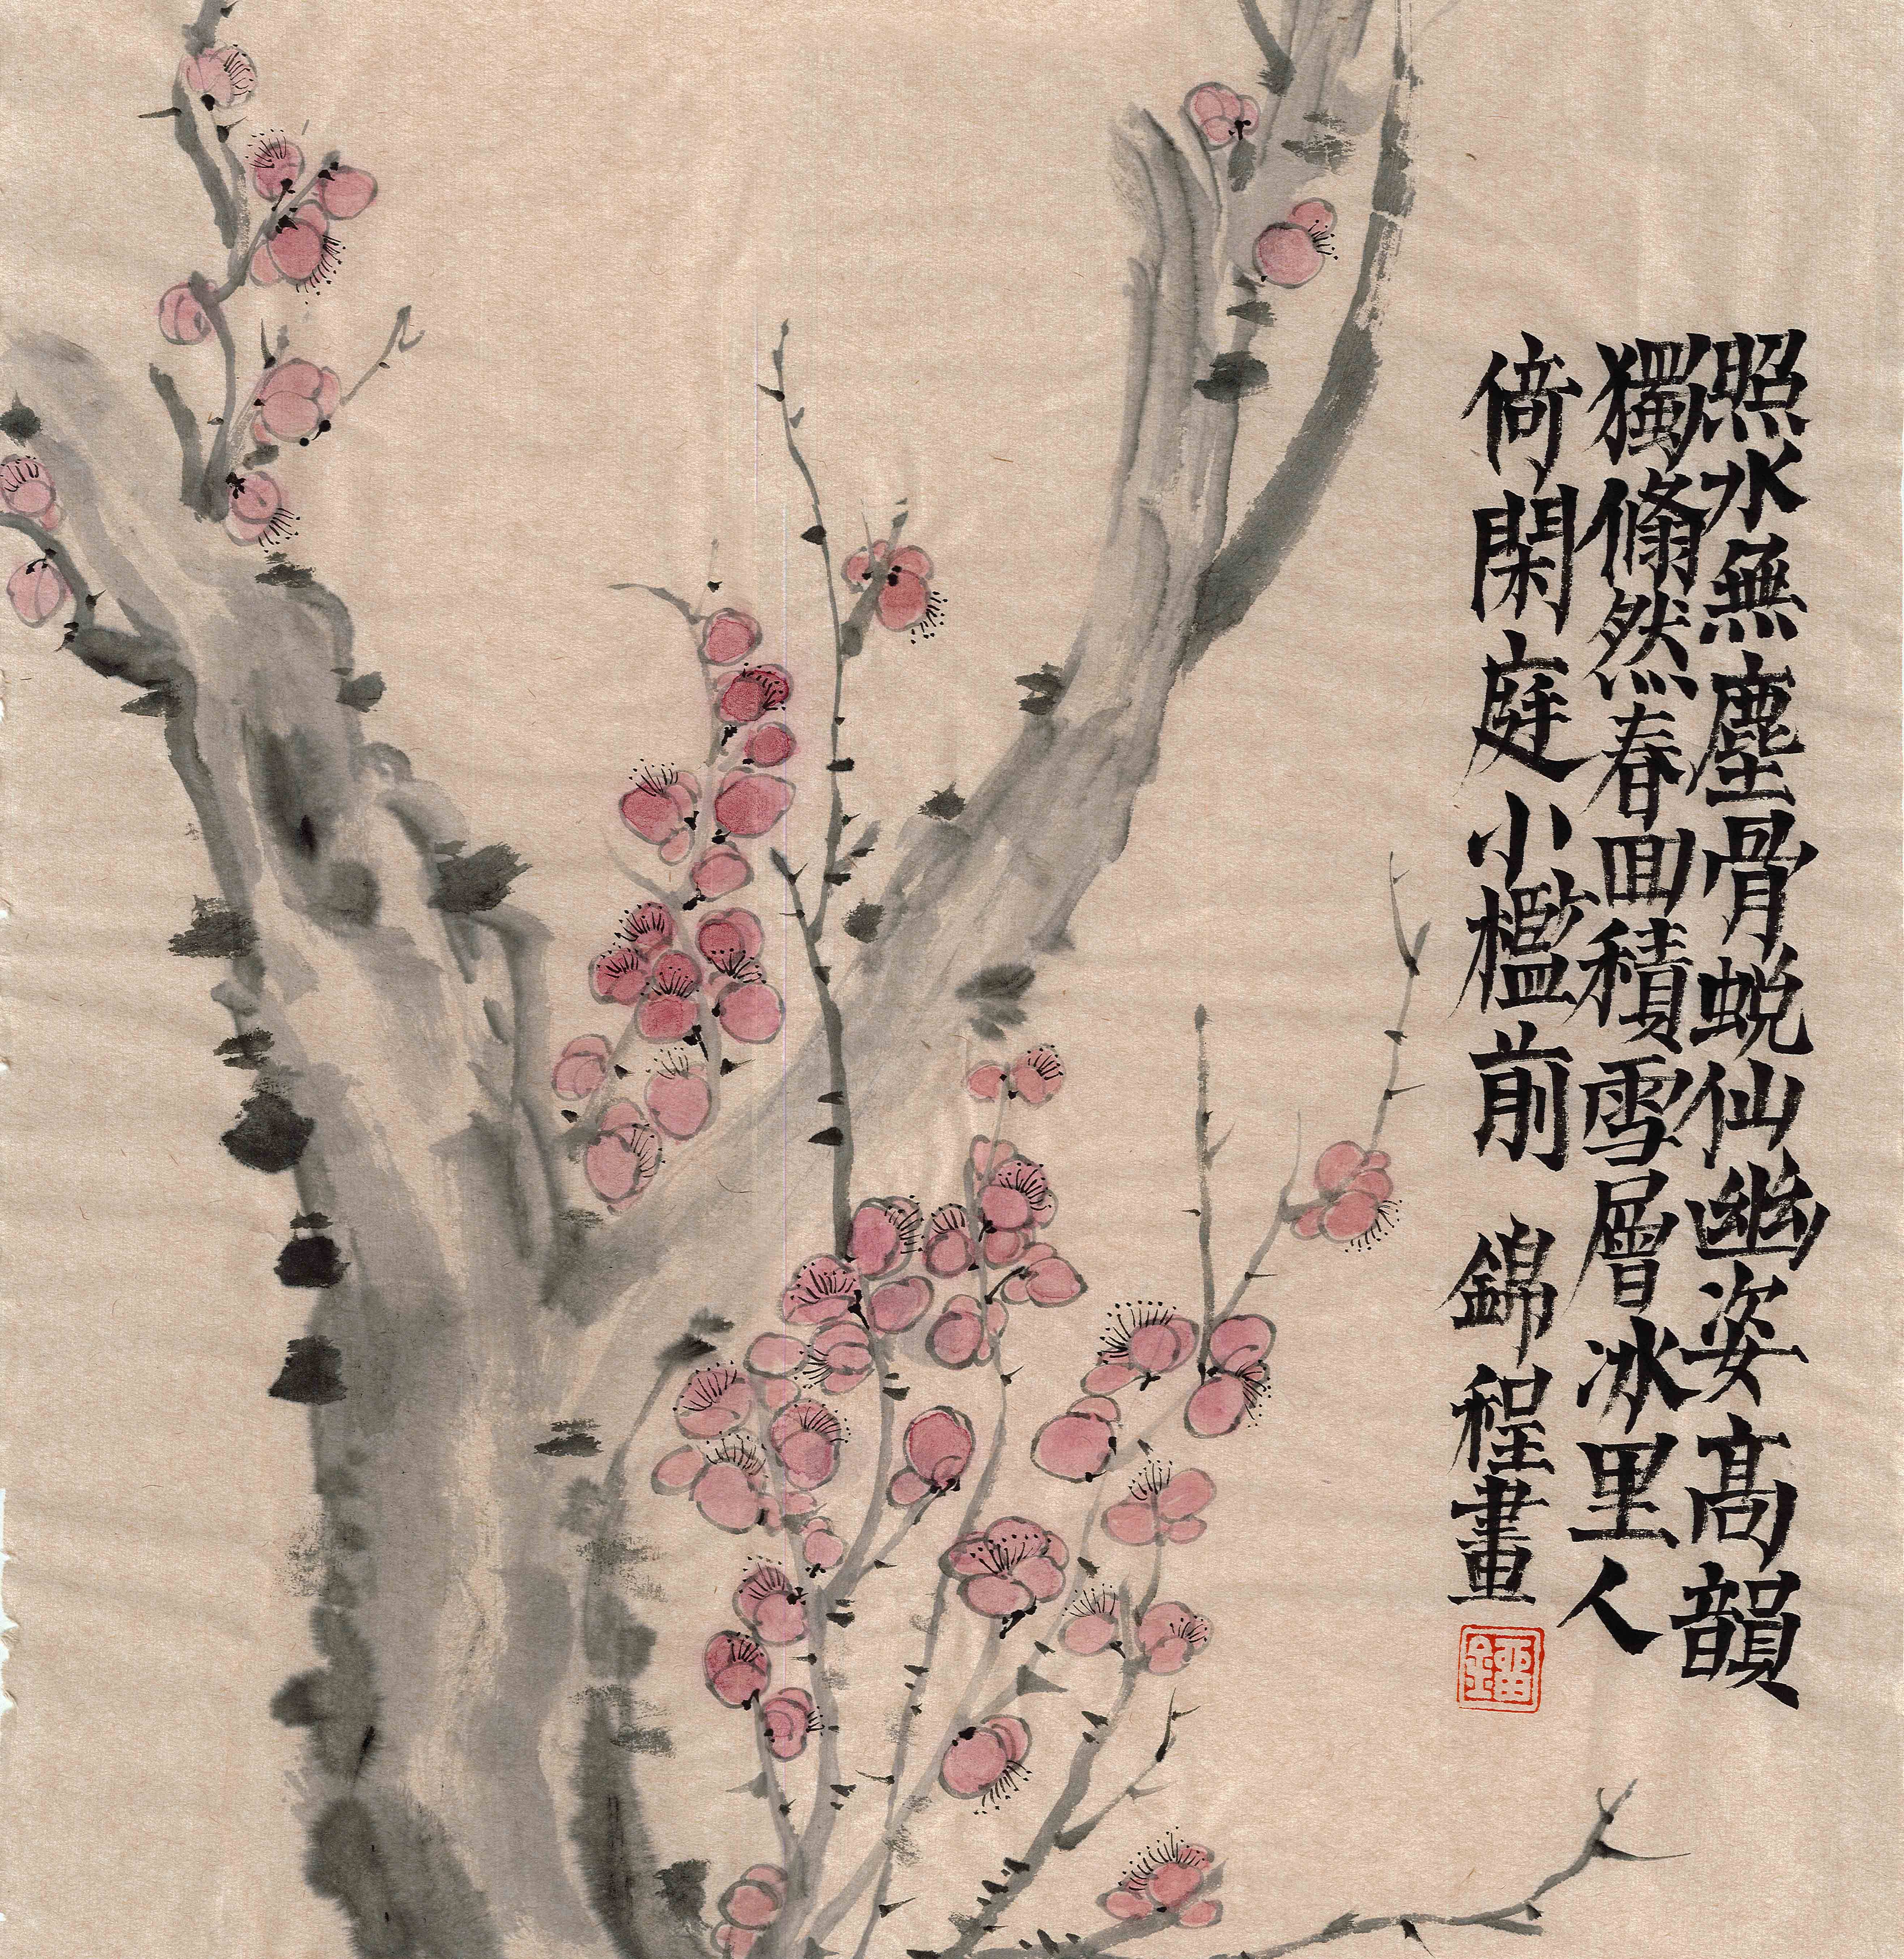 照水無塵骨蛻仙幽姿高韻
獨翛然春回積雪層冰里人
倚閑庭小檻前
錦程畫